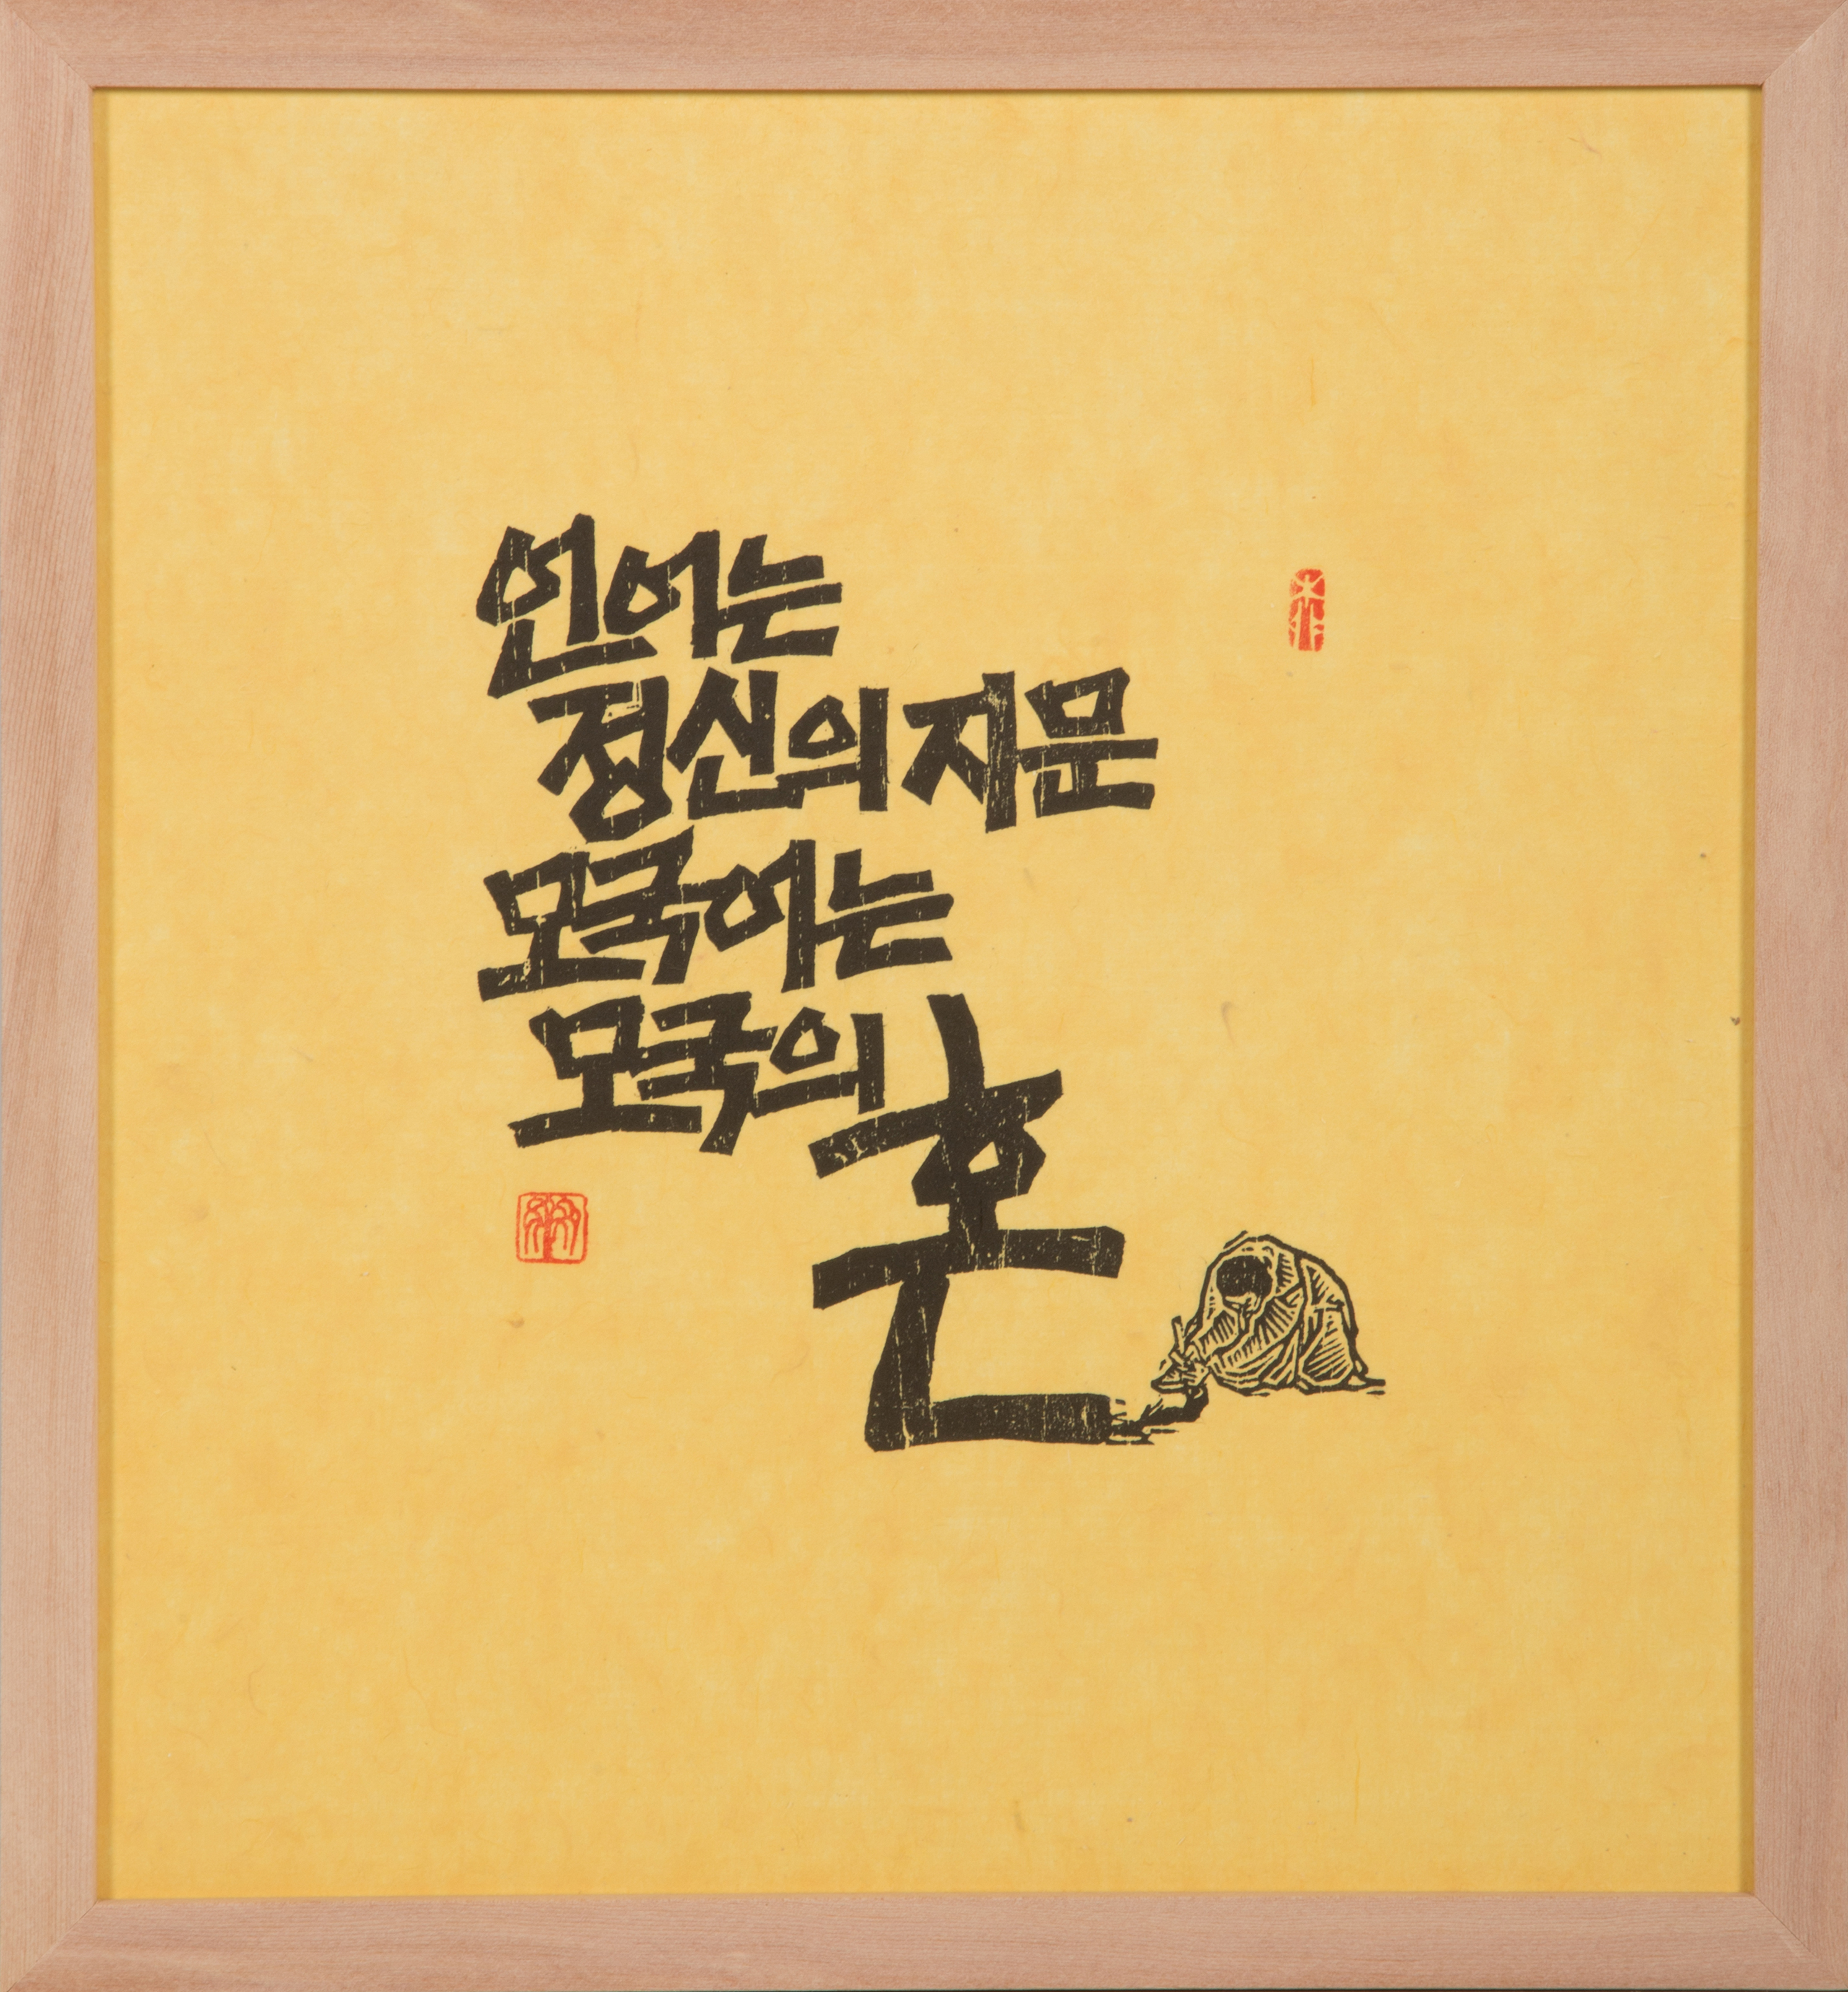 언어는
정신의 지문
모국어는
모국의 혼